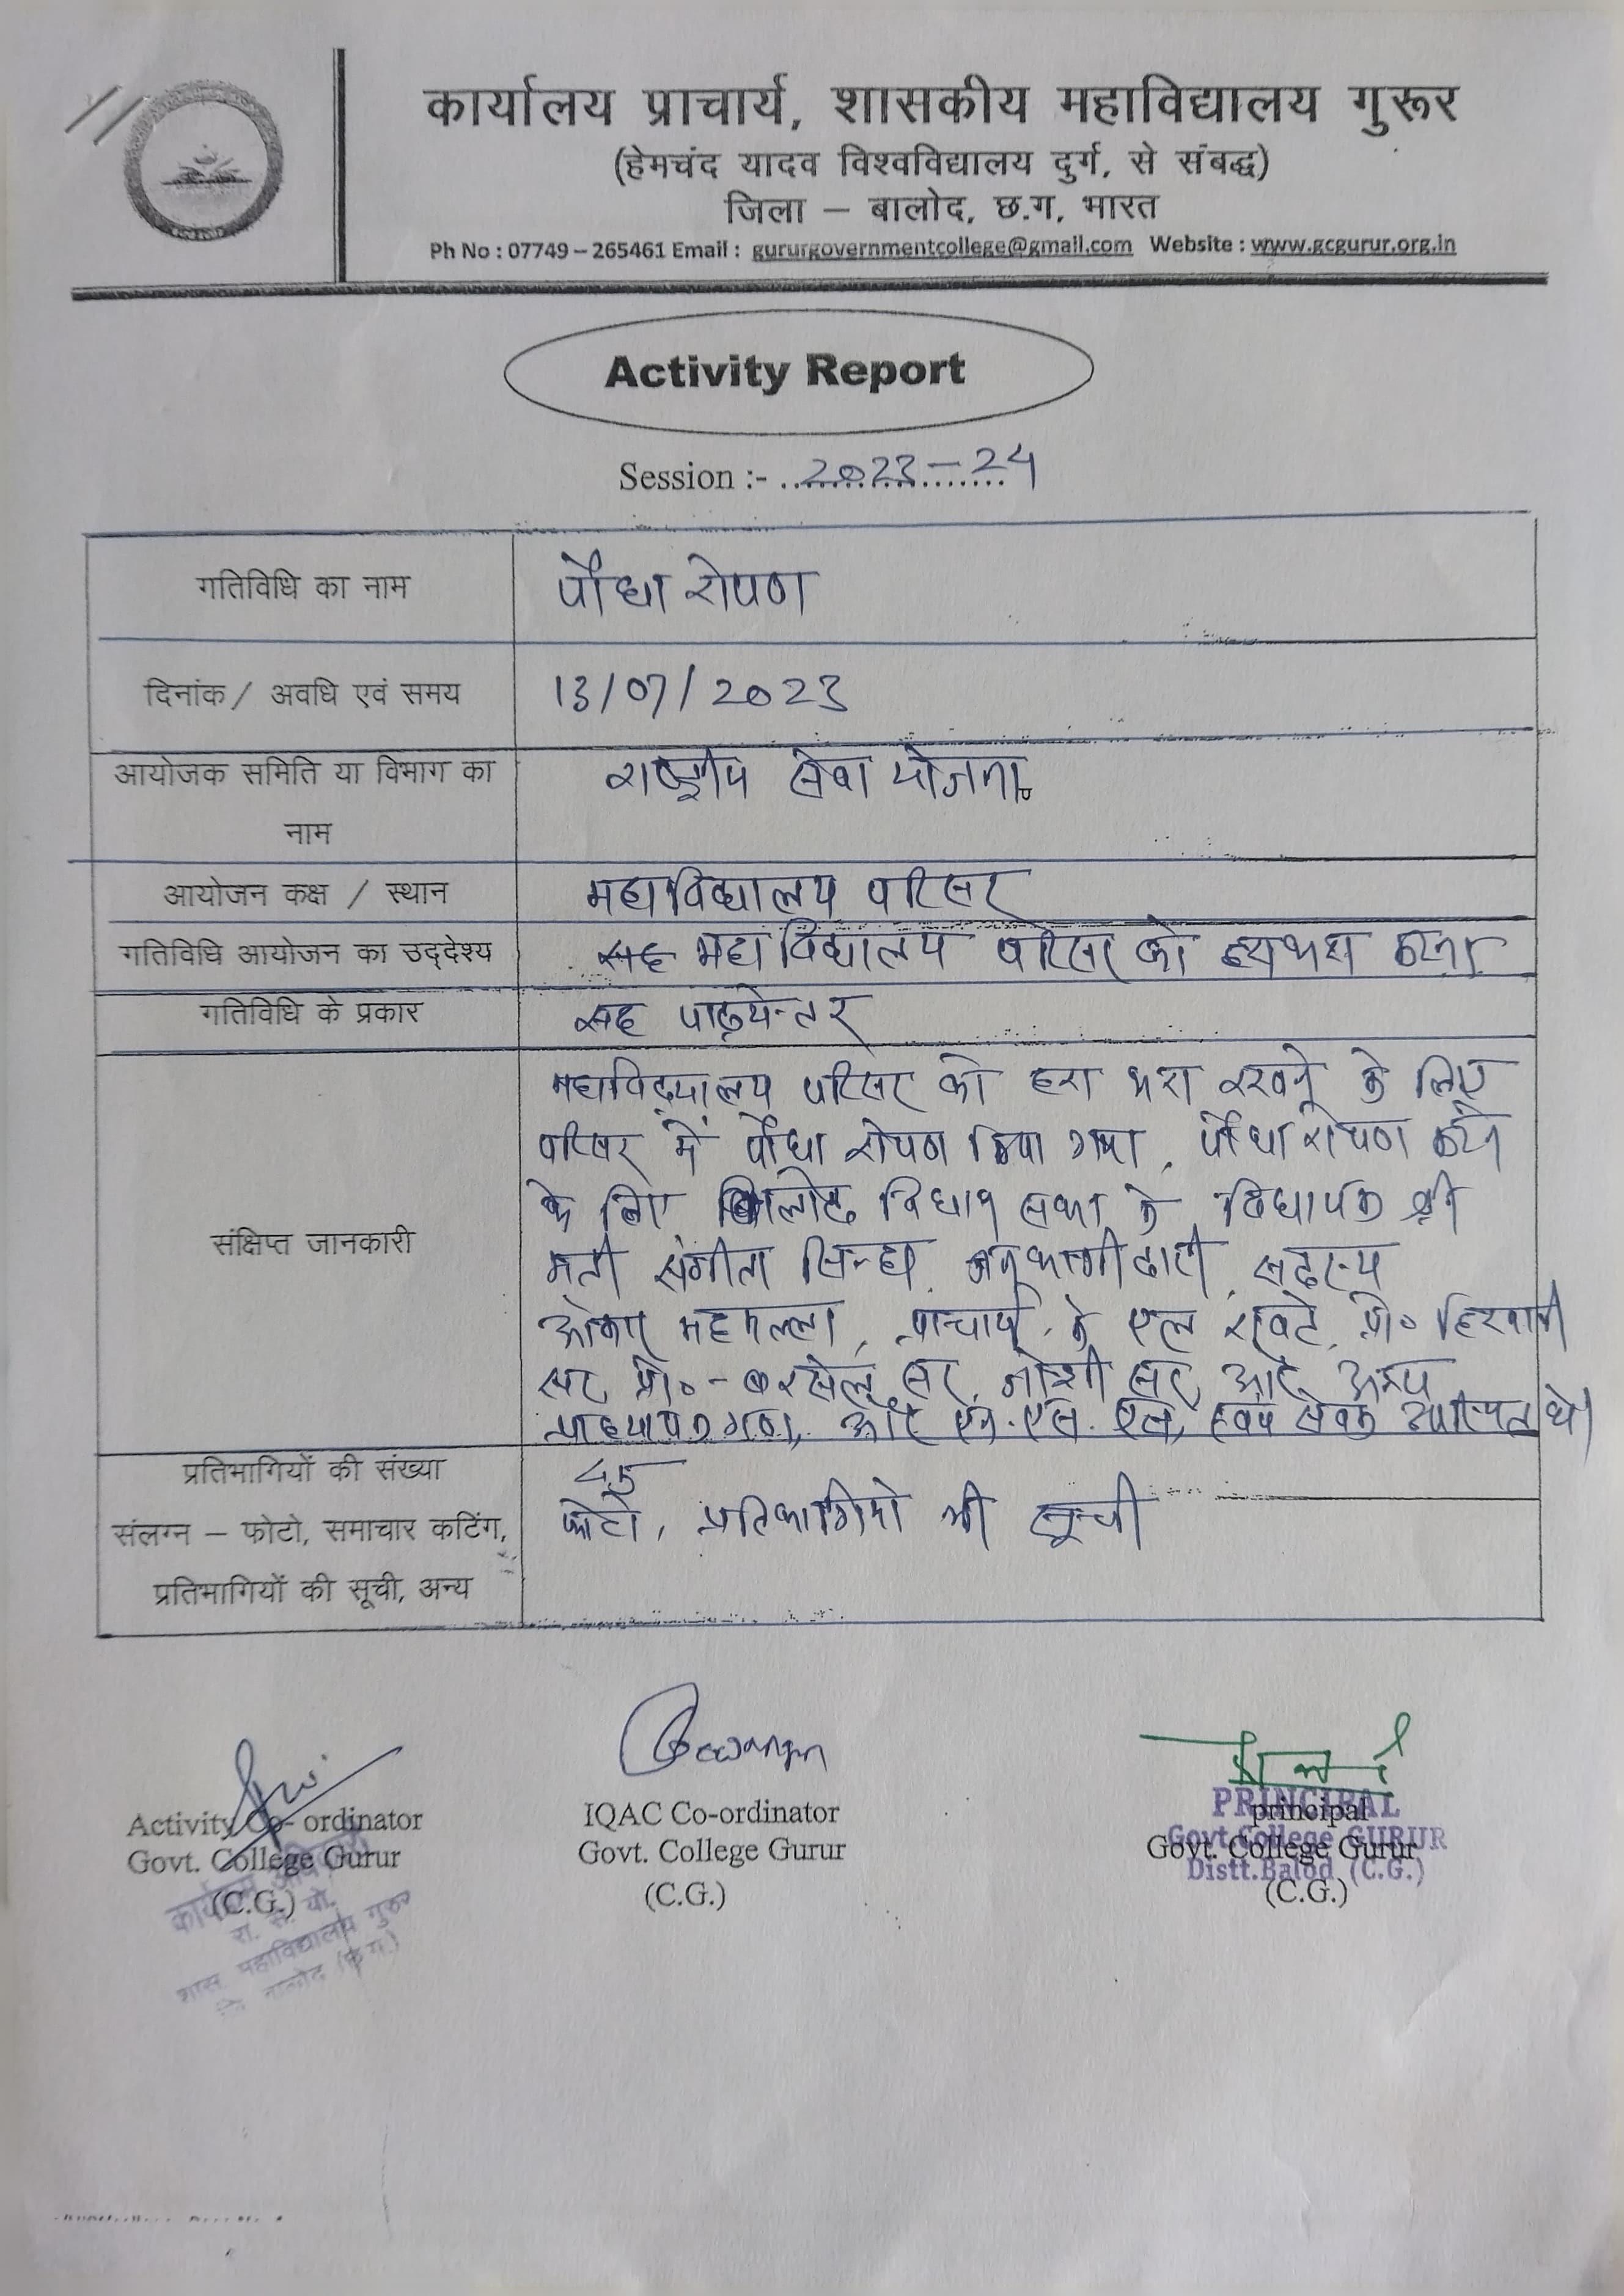 कार्यालय प्राचार्य, शासकीय महाविद्यालय गुरूर
(हेमचंद यादव विश्वविद्यालय दुर्ग, से संबद्ध)
जिला – बालोद, छ.ग, भारत
Ph No : 07749 – 265461 Email : gururgovernmentcollege@gmail.com Website : www.gcgurur.org.in
Activity Report
Session :- 2023-24
गतिविधि का नाम
पौधा रोपण
दिनांक / अवधि एवं समय
13/07/2023
आयोजक समिति या विभाग का
नाम
राष्ट्रीय सेवा योजना
आयोजन कक्ष / स्थान
महाविद्यालय परिसर
गतिविधि आयोजन का उद्देश्य
महाविद्यालय परिसर को हराभरा करना
गतिविधि के प्रकार
सह पाठ्येन्तर
संक्षिप्त जानकारी
महाविद्यालय परिसर को हरा भरा रखने के लिए
परिसर में पौधा रोपण किया गया, पौधा रोपण करने
के लिए विधान सभा के विधायक श्री
मती संगीता सिन्हा, जनभागीदारी सदस्य
महमल्ला, प्राचार्य के एल रावटे, प्रो० हिरवानी
सर, प्रो०- सर, जोशी सर, और अन्य
प्राध्यापकगण, और एन.एस.एस, स्वयं सेवक उपस्थित थे।
प्रतिभागियों की संख्या
45
संलग्न – फोटो, समाचार कटिंग,
प्रतिभागियों की सूची, अन्य
फोटो, प्रतिभागियो की सूची
Activity Co- ordinator
Govt. College Gurur
(C.G.)
कार्यक्रम अधिकारी
रा. से. यो.
शास महाविद्यालय गुरूर
IQAC Co-ordinator
Govt. College Gurur
(C.G.)
PRINCIPAL
Govt.College GURUR
Distt.Balod (C.G.)
principal
Govt. College Gurur
(C.G.)